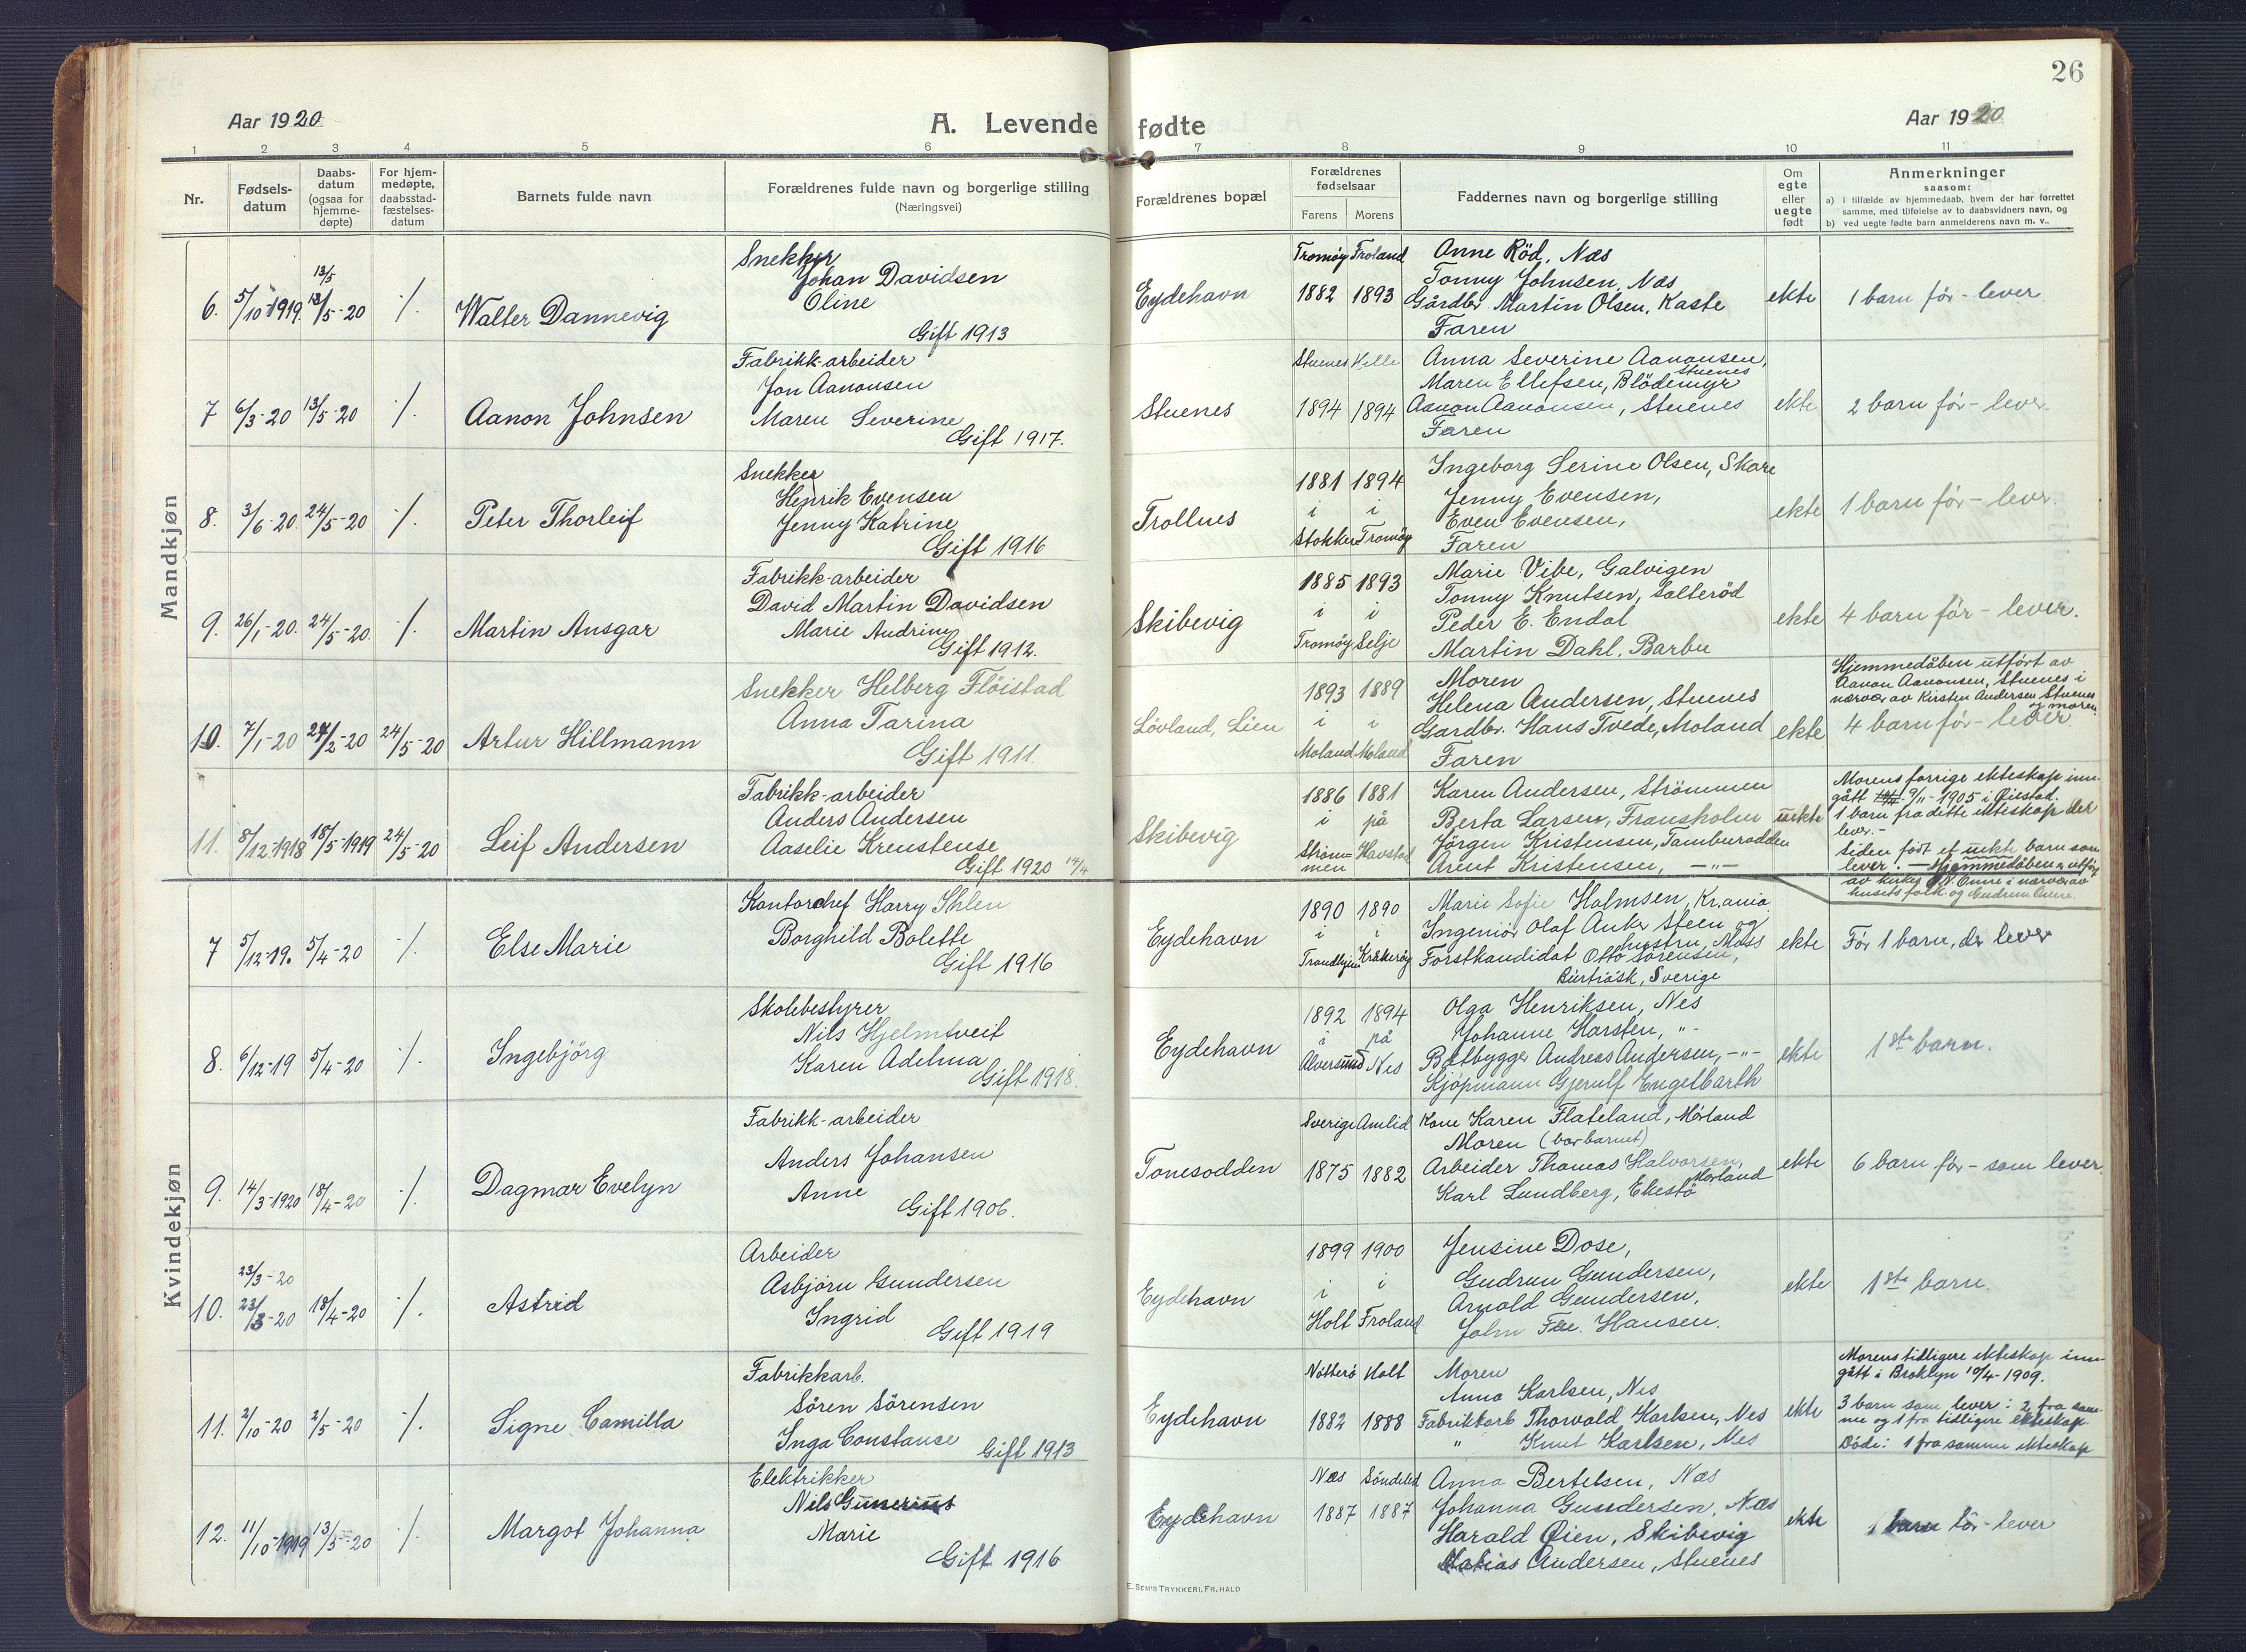 26
Aar 1920
A. Levende fødte
Aar 1920
1 2 3 4 5 6 7 8 9 10 11
Nr.
Fødsels-
datum
Daabs-
datum
(ogsaa for
hjemme-
døpte)
For hjem-
medøpte,
daabsstad-
fæstelses-
datum
Barnets fulde navn
Forældrenes fulde navn og borgerlige stilling
(Næringsvei)
Forældrenes bopæl
Forældrenes
fødselsaar
Farens Morens
Faddernes navn og borgerlige stilling
Om
egte
eller
uegte
født
Anmerkninger
saasom:
a) i tilfælde av hjemmedaab, hvem der har forrettet
samme, med tilføielse av to daabsvidners navn, og
b) ved uegte fødte barn anmelderens navn m. v..
Mandkjøn
6. 5/10-1919. 13/5 13/5-20 ./. Walter Dannevig
Snekker
Johan Davidsen
Oline
Gift 1913
Eydehavn
Tromøy Froland
1882 1893
Anne Röd, Næs
Tonny Johnsen, Næs
Gårdbr. Martin Olsen, Kaste
Faren
ekte
1 barn før - lever
7 6/3-20 13/5-20 ./. Aanon Johnsen
Fabrikk-arbeider
Jon Aanonsen
Maren Severine
Gift 1917.
Stuenes
Stuenes
1894 1894
Anna Severine Aanonsen,
Stuenes
Maren Ellefsen, Blödemyr
Aanon Aanonsen, Stuenes
Faren
ekte
2 barn før - lever.
8. 3/6-20. 24/5-20 ./. Peter Thorleif
Snekker
Henrik Evensen
Jenny Katrine
Gift 1916
Trollnes
1881 1894
i i
Stokken Tromöy
Ingeborg Serine Olsen, Skare
Jenny Evensen,
Even Evensen,
Faren
ekte
1 barn før - lever.
9. 26/1-20. 24/5-20. ./. Martin Ansgar
Fabrikk-arbeider
David Martin Davidsen
Marie Andrine
Gift 1912.
Skibevig
1885 1893
i i
Tromöy Selje
Marie Vibe, Galvigen
Tonny Knutsen, Salteröd
Peder E. Endal
Martin Dahl, Barbu
ekte
4 barn før - lever.
10. 7/1-20 24/2-20 24/5-20 Artur Hillmann
Snekker Helberg Flöistad
Anna Tarina
Gift 1911.
Lövland, Lien
1893 1889
i i
Moland Moland
Moren
Helena Andersen, Stuenes
Gardbr. Hans Tvede, Moland
Faren
ekte
Hjemmedåben utført av
Aanon Aanonsen, Stuenes i
nærvær av Kirsten Andersen Stuenes
og moren.
4 barn før - lever.
11. 8/12-1918 18/5-1919 24/5-20 Leif Andersen
Fabrikk-arbeider
Anders Andersen
Aaselie Krenstense
Gift 1920 14/4
Skibevig
1886 1881
i på
Ström-
men Havstad
Karen Andersen, Strömmen
Berta Larsen, Fransholm
Jörgen Kristensen, Tamburodden
Arent Kristensen, -"-
uekte
Morens forrige ekteskap inn-
gått 9/11-1905 i Øiestad.
1 barn fra dette ekteskap der
lever.-
Siden født et uekte barn som
lever. - Hjemmedåben er utfört
av N. Onne i nærvær av
husets folk og Gudrun Onne.
Kvindekjøn
7 5/12-19. 5/4-20 ./. Else Marie
Kontorchef Harry Ihlen
Borghild Bolette
Gift 1916
Eydehavn
1890 1890
i i
Trondhjem Kråkeröy
Marie Sofie Holmsen, Kr.ania
Ingeniör Olaf Anker Steen og
hustru, Moss
Forstkandidat Otto Sörensen,
Burträsk, Sverige
ekte
Før 1 barn, der lever
8. 6/12-19 5/4-20 ./. Ingebjörg
Skolebestyrer
Nils Hjelmtveit
Karen Adelma
Gift 1918.
Eydehavn
1892 1894
i på
Alversund Nes
Olga Henriksen, Nes
Johanne Harsten, "-
Båtbygger Andreas Andersen, -"-
Kjöpmann Gjerulf Engelbarth
ekte
1ste barn.
9. 14/3-1920 18/4-20 ./. Dagmar Evelyn
Fabrikk-arbeider
Anders Johansen
Anne
Gift 1906.
Tonesodden
Sverige Amlid
1875 1882
Kone Karen Flateland, Mörland
Moren (bar barnet)
Arbeider Thomas Halvorsen,
Morland
Karl Lundberg, Ekestö
ekte
6 barn før - som lever.
10. 23/3-20 23/3-20 18/4-20 ./. Astrid
Arbeider
Asbjörn Gundersen
Ingrid
Gift 1919
Eydehavn
1899 1900
i i
Holt Froland
Jensine Dose,
Gudrun Gundersen,
Arnold Gundersen,
John Hansen.
ekte
1ste barn.
11. 2/10-20 2/5-20 ./. Signe Camilla
Fabrikkarb.
Sören Sörensen
Inga Constanse
Gift 1913
Eydehavn
Nötterö Holt
1882 1888
Moren
Anna Karlsen, Nes
Fabrikkarb Thorvald Karlsen, Nes
" Knut Karlsen, Nes
ekte
Morens tidligere ekteskap inn-
gått i Broklyn 10/4-1909.
3 barn som lever: 2 fra sam-
me og 1 fra tidligere ekteskap.
Döde: 1 fra samme ekteskap
12. 11/10-1919 13/5-20 ./. Margot Johanna
Elektrikker
Nils Gunerius
Marie
Gift 1916
Eydehavn
Næs Söndeled
1887 1887
Anna Bertelsen, Næs
Johanna Gundersen, Næs
Harald Øien, Skibevig
Matias Andersen, Stuenes
ekte
1 barn før - lever
E. SEM'S TRYKKERI, FR.HALD